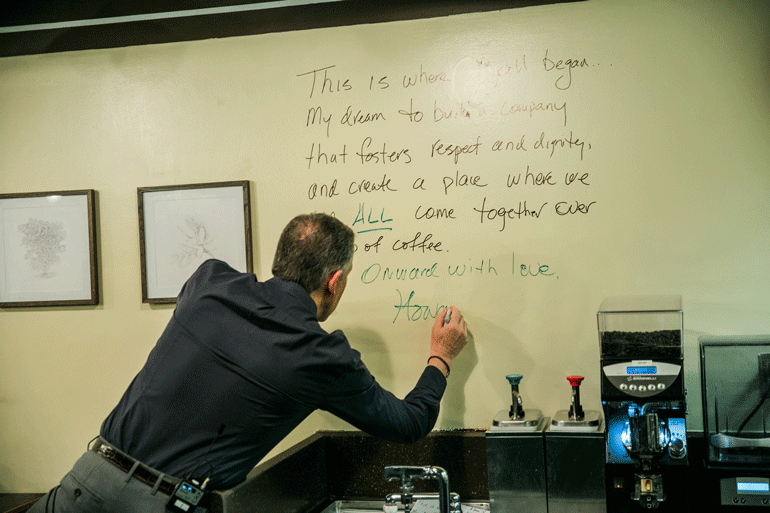 This is where all began....
My dream to build a company
that fosters respect and dignity,
and create a place where we
ALL come together over
of coffee.
Onward with love.
Howar